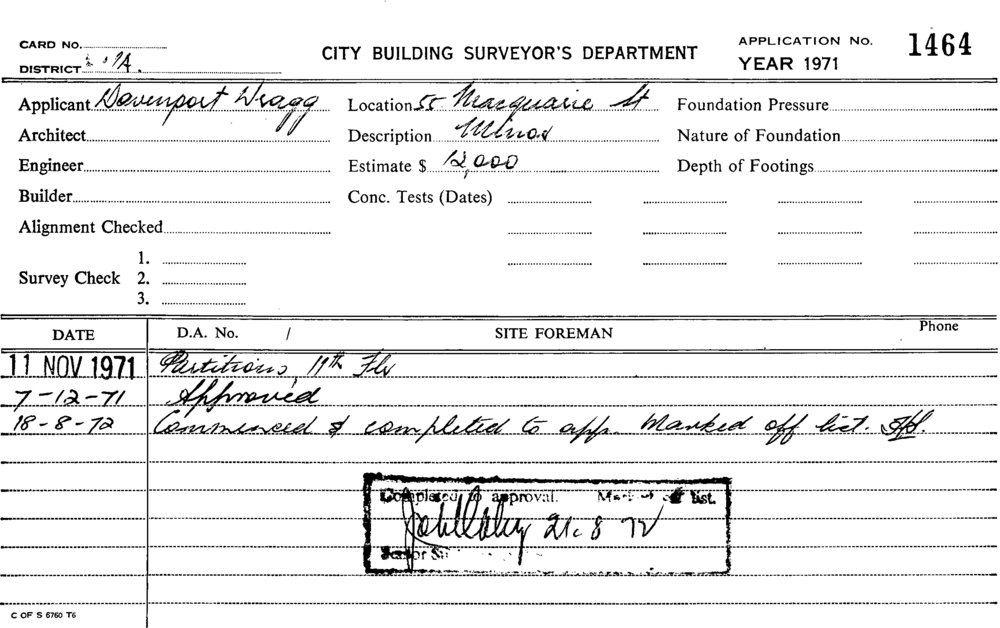 CARD No.
DISTRICT
CITY BUILDING SURVEYOR'S DEPARTMENT
APPLICATION No. 1464
YEAR 1971
Applicant Davenport Wragg
Location 55 Macquarie St
Foundation Pressure
Architect
Description Minor
Nature of Foundation
Engineer
Estimate $ 12,000
Depth of Footings
Builder
Conc. Tests (Dates)
Alignment Checked
Survey Check
1.
2.
3.
DATE D.A. No. / SITE FOREMAN Phone
11 NOV 1971 Partitions, 11th Flr
7-12-71 Approved
18-8-72 Commenced & completed to app. Marked off list.
Completed to approval. Marked off list.
21.8 72
Senior
C OF S 6760 T6